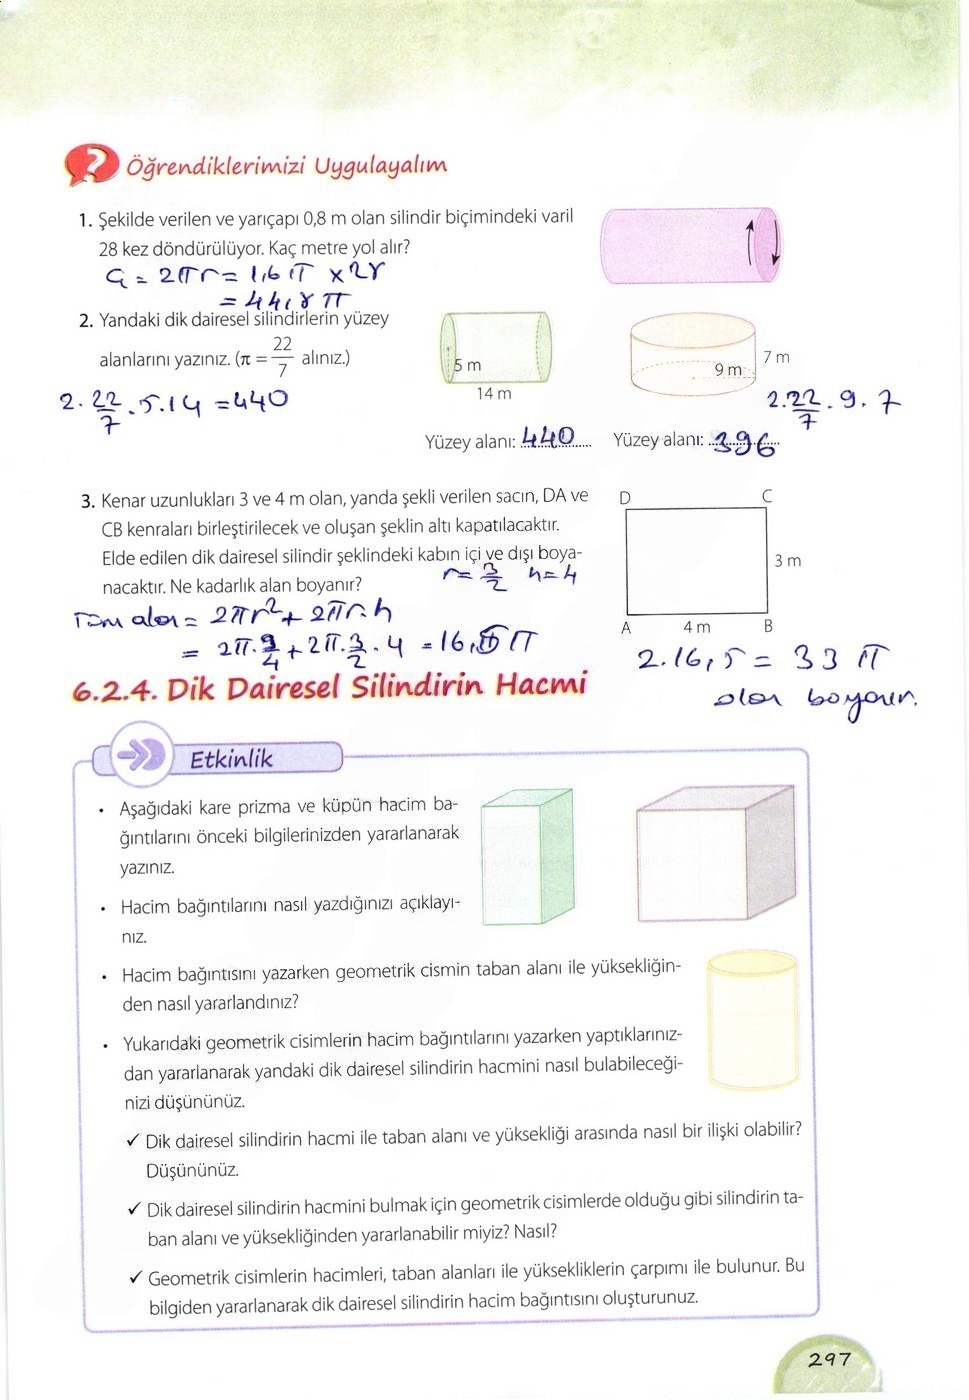 Öğrendiklerimizi Uygulayalım
1. Şekilde verilen ve yarıçapı 0,8 m olan silindir biçimindeki varil
28 kez döndürülüyor. Kaç metre yol alır?
Ç = 2πr = 1,6 π x 28
= 44,8 π
2. Yandaki dik dairesel silindirlerin yüzey
alanlarını yazınız. (π = 22/7 alınız.)
5 m
14 m
9 m
7 m
2. 22/7 . 5. 14 = 440
2. 22/7 . 9. 7
Yüzey alanı: 440
Yüzey alanı: 396
3. Kenar uzunlukları 3 ve 4 m olan, yanda şekli verilen sacın, DA ve
CB kenraları birleştirilecek ve oluşan şeklin altı kapatılacaktır.
Elde edilen dik dairesel silindir şeklindeki kabın içi ve dışı boya-
nacaktır. Ne kadarlık alan boyanır?
r = 3/2 h = 4
D C
3 m
A 4 m B
Tüm alan = 2πr² + 2πr.h
= 2π. 9/4 + 2π. 3/2 . 4 = 16,5 π
2. 16,5 = 33 π
alan boyanır.
6.2.4. Dik Dairesel Silindirin Hacmi
Etkinlik
• Aşağıdaki kare prizma ve küpün hacim ba-
ğıntılarını önceki bilgilerinizden yararlanarak
yazınız.
• Hacim bağıntılarını nasıl yazdığınızı açıklayı-
nız.
• Hacim bağıntısını yazarken geometrik cismin taban alanı ile yüksekliğin-
den nasıl yararlandınız?
• Yukarıdaki geometrik cisimlerin hacim bağıntılarını yazarken yaptıklarınız-
dan yararlanarak yandaki dik dairesel silindirin hacmini nasıl bulabileceği-
nizi düşününüz.
✓ Dik dairesel silindirin hacmi ile taban alanı ve yüksekliği arasında nasıl bir ilişki olabilir?
Düşününüz.
✓ Dik dairesel silindirin hacmini bulmak için geometrik cisimlerde olduğu gibi silindirin ta-
ban alanı ve yüksekliğinden yararlanabilir miyiz? Nasıl?
✓ Geometrik cisimlerin hacimleri, taban alanları ile yüksekliklerin çarpımı ile bulunur. Bu
bilgiden yararlanarak dik dairesel silindirin hacim bağıntısını oluşturunuz.
297